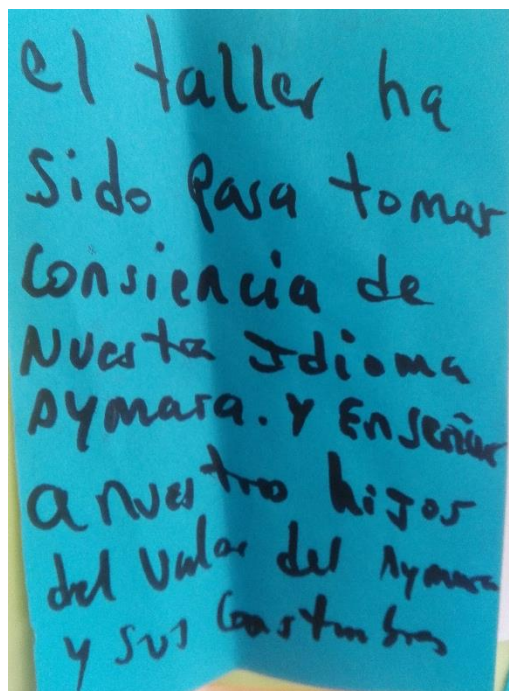 El taller ha
sido para tomar
Consiencia de
Nuesta Idioma
Aymara. Y Enseñar
a nuestro hijos
del valor del Aymara
y sus Constumbres